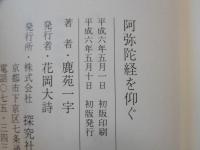 阿弥陀経を仰ぐ
平成六年五月一日　初版印刷
平成六年五月十日　初版発行
著　者・鹿苑一宇
発行者・花岡大詩
発行所・株式会社　探究社
京都市下京区七条通
電話〇七五-三四三